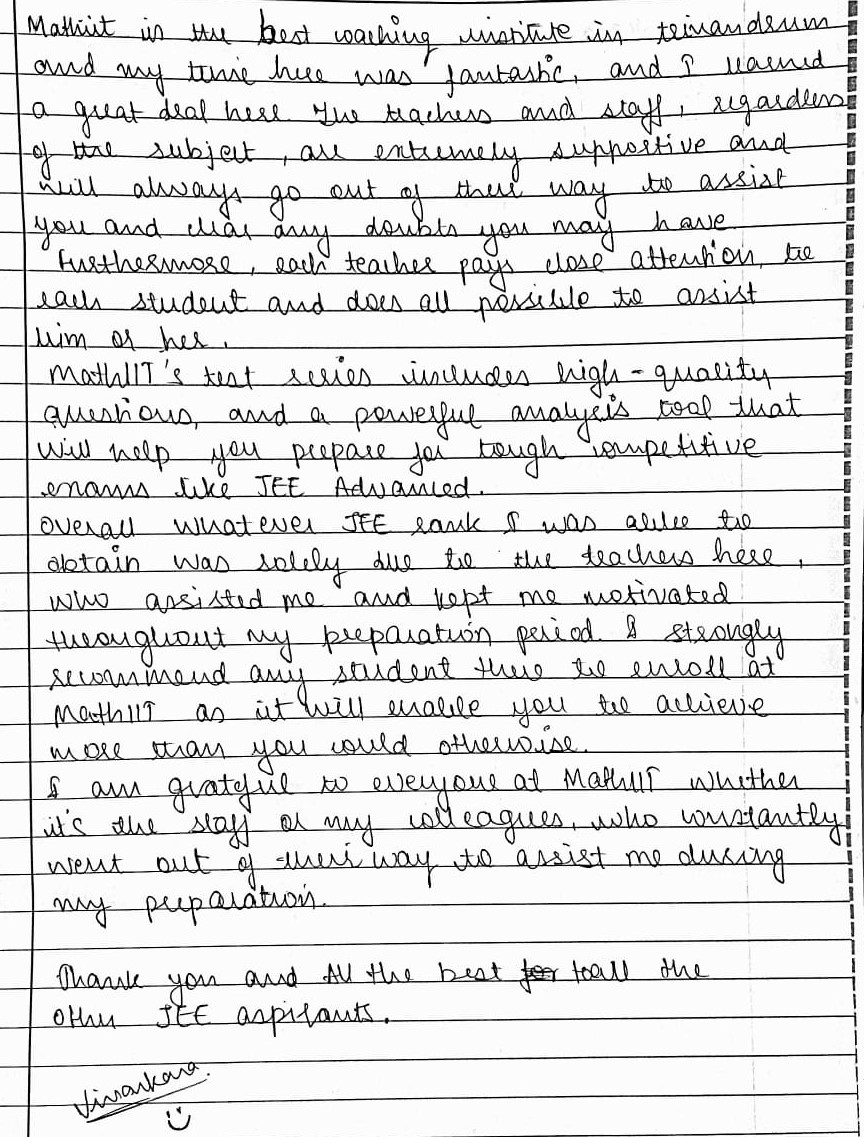 Mathiit is the best coaching institute in trivandrum
and my time here was fantastic, and I learned
a great deal here The teachers and staff, regardless
of the subject, are extremely supportive and
will always go out of their way to assist
you and clear any doubts you may have
Furthermore, each teacher pays close attention to
each student and does all possible to assist
him or her.
MathIIT's test series includes high-quality
questions, and a powerful analysis tool that
will help you prepare for tough competitive
exams like JEE Advanced.
Overall whatever JEE rank I was able to
obtain was solely due to the teachers here,
who assisted me and kept me motivated
throughout my preparation period. I strongly
recommend any student there to enroll at
MathIIT as it will enable you to achieve
more than you could otherwise.
I am grateful to everyone at MathIIT whether
it's the staff or my colleagues, who constantly
went out of their way to assist me during
my preparation.
Thank you and All the best for to all the
other JEE aspirants.